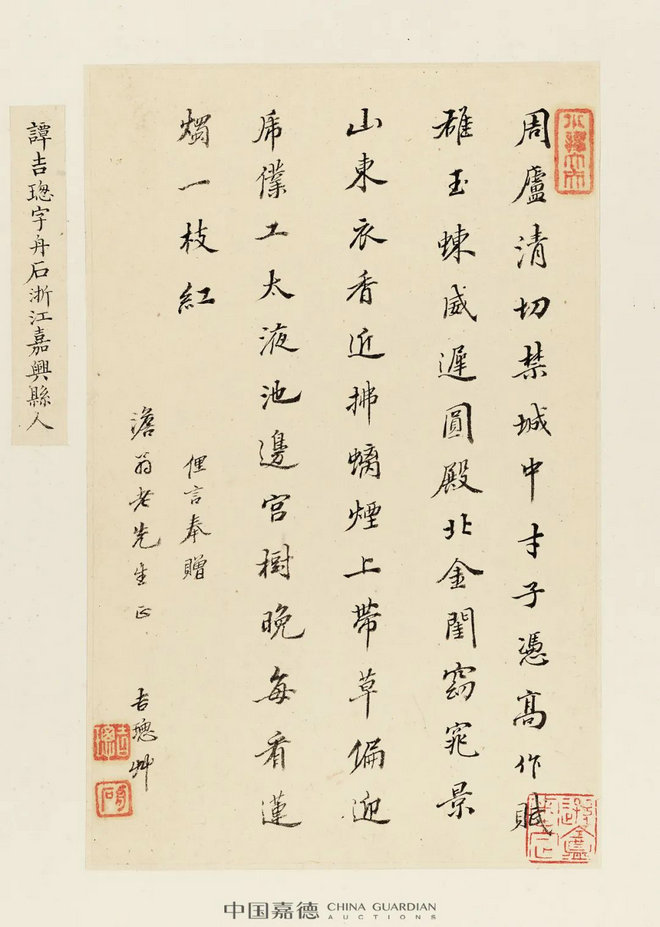 周廬清切禁城中才子憑高作賦
雄玉蝀威遲圓殿北金閨窈窕景
山東衣香近拂螭煙上帶草偏迎
席儤工太液池邊宮樹晚每看蓮
燭一枝紅
俚言奉贈
澹翁老先生正
吉璁艸
譚吉璁字舟石浙江嘉興縣人
中国嘉德 CHINA GUARDIAN
AUCTIONS